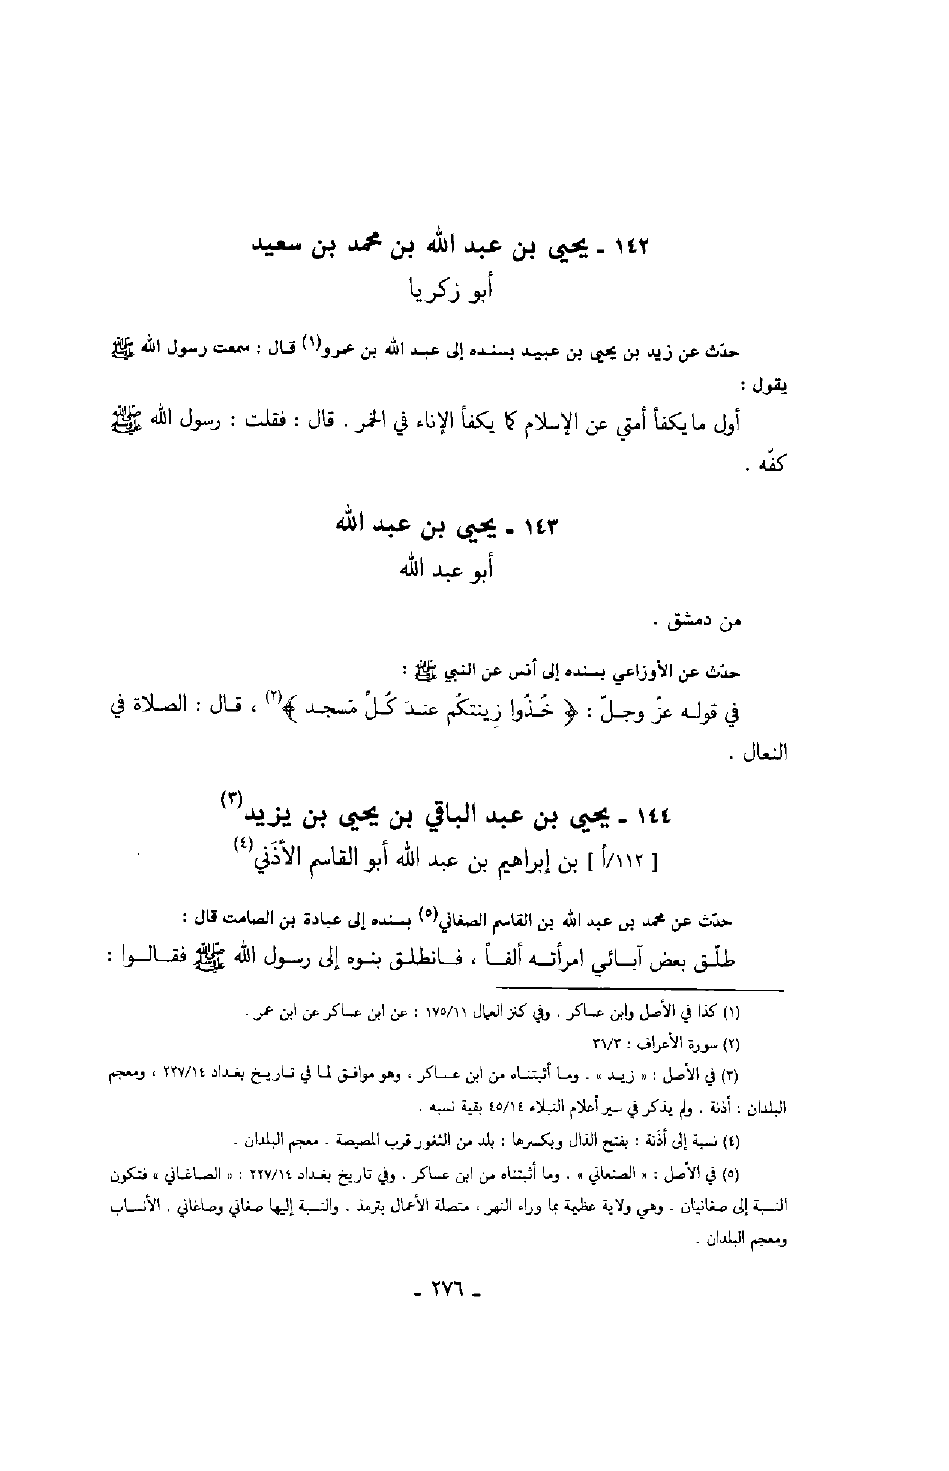 ١٤٢ ـ يحيى بن عبد الله بن محمد بن سعيد
أبو زكريا
حدّث عن زيد بن يحيى بن عبيد بسنده إلى عبد الله بن عمرو(١) قال : سمعت رسول الله ﷺ
يقول :
أول ما يكفأ أمتي عن الإسلام كما يكفأ الإناء في الخمر . قال : فقلت : رسول الله ﷺ
كفّه .
١٤٣ ـ يحيى بن عبد الله
أبو عبد الله
من دمشق .
حدّث عن الأوزاعي بسنده إلى أنس عن النبي ﷺ :
في قوله عزّ وجلّ : ﴿ خُذُوا زِينتكُم عندَ كُلِّ مَسجد ﴾(٢) ، قال : الصلاة في
النعال .
١٤٤ ـ يحيى بن عبد الباقي بن يحيى بن يزيد(٣)
[ ١١٢/أ ] بن إبراهيم بن عبد الله أبو القاسم الأَذَني(٤)
حدّث عن محمد بن عبد الله بن القاسم الصغاني(٥) بسنده إلى عبادة بن الصامت قال :
طلّق بعض آبائي امرأته ألفاً ، فانطلق بنوه إلى رسول الله ﷺ فقالوا :
(١) كذا في الأصل وابن عساكر . وفي كنز العمال ١٧٥/١١ : عن ابن عساكر عن ابن عمر .
(٢) سورة الأعراف : ٣١/٣
(٣) في الأصل : « زيد » . وما أثبتناه من ابن عساكر ، وهو موافق لما في تاريخ بغداد ٢٢٧/١٤ ، ومعجم
البلدان : أذنة . ولم يذكر في سير أعلام النبلاء ٤٥/١٤ بقية نسبه .
(٤) نسبة إلى أذَنة : بفتح الذال وبكسرها : بلد من الثغور قرب المصيصة . معجم البلدان .
(٥) في الأصل : « الصنعاني » . وما أثبتناه من ابن عساكر . وفي تاريخ بغداد ٢٢٧/١٤ : « الصاغاني » فتكون
النسبة إلى صغانيان . وهي ولاية عظيمة بما وراء النهر ، متصلة الأعمال بترمذ . والنسبة إليها صغاني وصاغاني . الأنساب
ومعجم البلدان .
ـ ٢٧٦ ـ